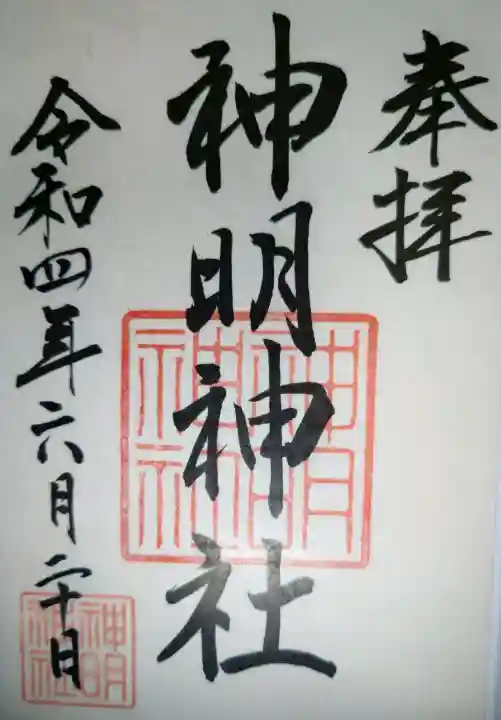 奉拝
神明神社
令和四年六月二十日
神明
神社
神明
神社